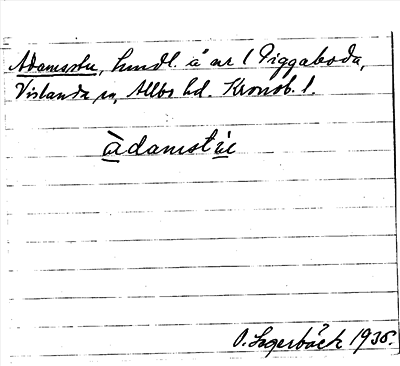 Adamsstu, hmdl. å ar 1 Piggaboda,
Vislanda sn, Allbo hd. Kronob. l.
àdamstu̇
O. Lagerbäck 1935.